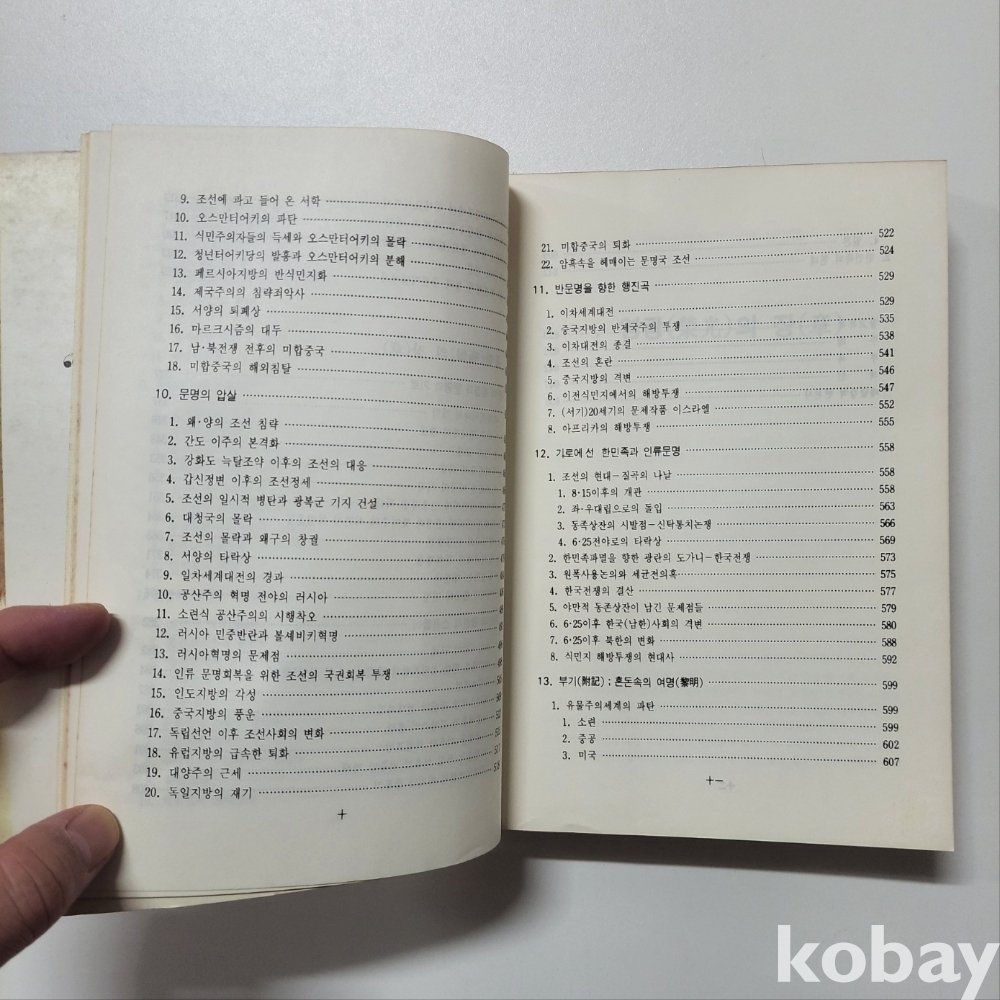 9. 조선에 파고 들어 온 서학
10. 오스만터어키의 파단
11. 식민주의자들의 득세와 오스만터어키의 몰락
12. 청년터어키당의 발흥과 오스만터어키의 분해
13. 페르시아지방의 반식민지화
14. 제국주의의 침략죄악사
15. 서양의 퇴폐상
16. 마르크시즘의 대두
17. 남·북전쟁 전후의 미합중국
18. 미합중국의 해외침탈
10. 문명의 압살
1. 왜·양의 조선 침략
2. 간도 이주의 본격화
3. 강화도 늑탈조약 이후의 조선의 대응
4. 갑신정변 이후의 조선정세
5. 조선의 일시적 병탄과 광복군 기지 건설
6. 대청국의 몰락
7. 조선의 몰락과 왜구의 창궐
8. 서양의 타락상
9. 일차세계대전의 경과
10. 공산주의 혁명 전야의 러시아
11. 소련식 공산주의의 시행착오
12. 러시아 민중반란과 볼셰비키혁명
13. 러시아혁명의 문제점
14. 인류 문명회복을 위한 조선의 국권회복 투쟁
15. 인도지방의 각성
16. 중국지방의 풍운
17. 독립선언 이후 조선사회의 변화
18. 유럽지방의 급속한 퇴화
19. 대양주의 근세
20. 독일지방의 재기
十
21. 미합중국의 퇴화 522
22. 암흑속을 헤매이는 문명국 조선 524
11. 반문명을 향한 행진곡 529
1. 이차세계대전 529
2. 중국지방의 반제국주의 투쟁 535
3. 이차대전의 종결 538
4. 조선의 혼란 541
5. 중국지방의 격변 546
6. 이전식민지에서의 해방투쟁 547
7. (서기)20세기의 문제작품 이스라엘 552
8. 아프리카의 해방투쟁 555
12. 기로에 선 한민족과 인류문명 558
1. 조선의 현대－질곡의 나날 558
1. 8·15이후의 개관 558
2. 좌·우대립으로의 돌입 563
3. 동족상잔의 시발점－신탁통치논쟁 566
4. 6·25전야로의 타락상 569
2. 한민족파멸을 향한 광란의 도가니－한국전쟁 573
3. 원폭사용논의와 세균전의혹 575
4. 한국전쟁의 결산 577
5. 야만적 동존상잔이 남긴 문제점들 579
6. 6·25이후 한국(남한)사회의 격변 580
7. 6·25이후 북한의 변화 588
8. 식민지 해방투쟁의 현대사 592
13. 부기(附記) ; 혼돈속의 여명(黎明) 599
1. 유물주의세계의 파탄 599
1. 소련 599
2. 중공 602
3. 미국 607
十一
kobay